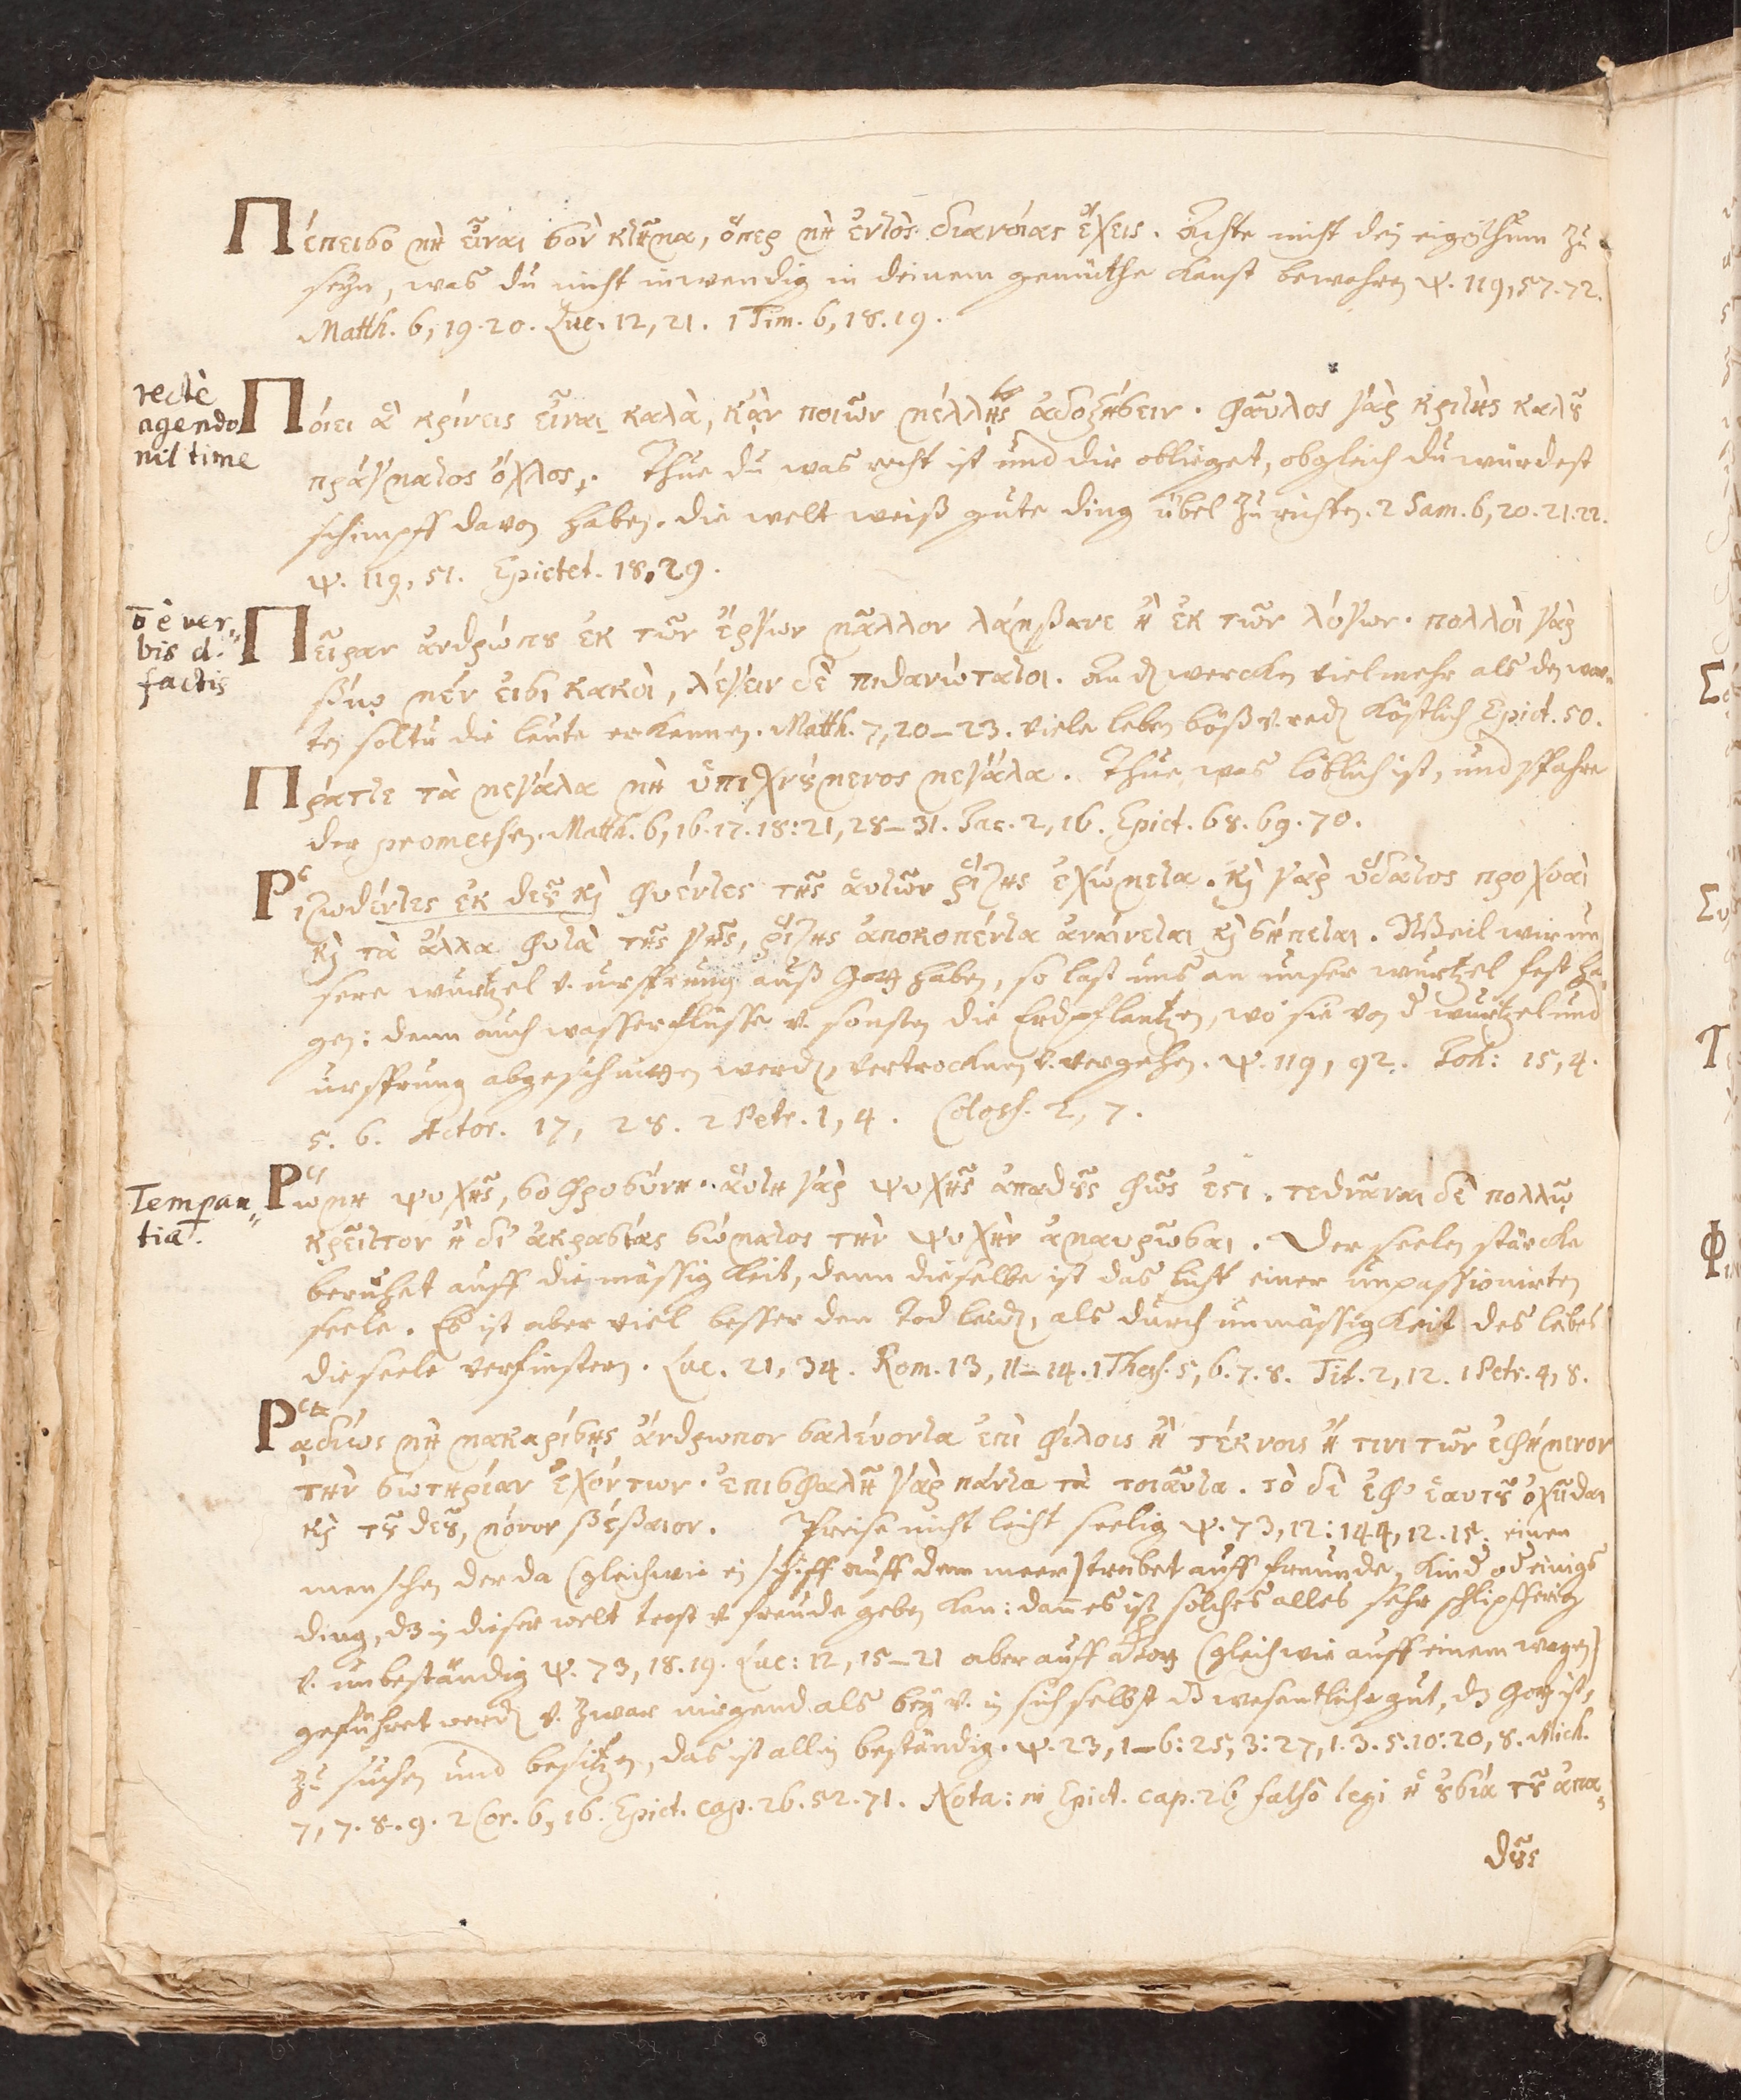 Πέπεισο μὴ εἶναι σὸν κτῆμα, ὅπερ μὴ ἐντὸς διανοίας ἔχεις. Achte nicht dein eigenthum zu
seyn, was du nicht inwendig in deinem gemüthe kanst bewahren ψ. 119, 57. 72.
Matth. 6, 19. 20. Luc. 12, 21. 1 Tim. 6, 18. 19.
rectè
agendo
nil time
Ποίει ἃ κρίνεις εἶναι καλὰ, κᾂν ποιῶν μέλλῃς ἀδοξήσειν. φαῦλος γὰρ κριτὴς καλȣ͂
πράγματος ὄχλος. Thue du was recht ist und dir oblieget, obgleich du würdest
schimpff davon haben. die welt weiß gute ding übel zu richten. 2 Sam. 6, 20. 21. 22.
ψ. 119, 51. Epictet. 18, 29.
è ver=
bis d.
factis
Πεῖραν ἀνθρώπȣ ἐκ τῶν ἔργων μᾶλλον λάμβανε ἢ ἐκ τῶν λόγων. πολλοὶ γὰρ
βίῳ μέν εἰσι κακοὶ, λέγειν δὲ πιθανώτατοι. An den wercken vielmehr als den wor=
ten soltu die leute erkennen. Matth. 7, 20–23. viele leben böß v. reden köstlich Epict. 50.
Πράττε τὰ μεγάλα μὴ ὑπιχνȣ́μενος μεγάλα. Thue was löblich ist, und spahre
den promessen. Matth. 6, 16. 17. 18: 21, 28–31. Jac. 2, 16. Epict. 68. 69. 70.
Ῥιζωθέντες ἐκ θεȣ͂ κὶ φυέντες τῆς αὑτῶν ῥίζης ἐχώμεθα. κὶ γὰρ ὕδατος προχοαὶ
κὶ τὰ ἄλλα φυτὰ τῆς γῆς, ῥίζης ἀποκοπέντα αὐαίνεται κὶ σήπεται. Weil wir un
sere wurtzel v. ursprung auß Gott haben, so last uns an unser wurtzel fest han
gen: denn auch wasserflüsse v. sonsten die Erdpflantzen, wo sie von der wurtzel und
ursprung abgeschnitten werden, vertrocknen v. vergehen. ψ. 119, 92. Joh: 15, 4.
5. 6. Actor. 17, 28. 2 Petr. 1, 4. Coloss. 2, 7.
Temperan=
tia.
Ῥώμη ψυχῆς, σοφροσύνη. αὕτη γὰρ ψυχῆς ἀπαθȣ͂ς φῶς ἐστι. τεθνᾶναι δὲ πολλῷ
κρεῖττον ἢ δι' ἀκρασίας σώματος τὴν ψυχὴν ἀμαυρῶσαι. Der seelen stärcke
beruhet auff die mässigkeit, denn dieselbe ist das licht einer unpassionirten
seele. Es ist aber viel besser den Tod leiden, als durch unmässigkeit des leibes
die seele verfinstern. Luc. 21, 34. Rom. 13, 11–14. 1 Thess. 5, 6. 7. 8. Tit. 2, 12. 1 Petr. 4, 8.
Ῥᾳδίως μὴ μακαρίσῃς ἄνθρωπον σαλεύοντα ἐπὶ φίλοις ἢ τέκνοις ἤ τινι τῶν ἐφήμερον
τὴν σωτηρίαν ἐχόντων. ἐπισφαλῆ γὰρ πάντα τὰ τοιαῦτα. τὸ δὲ ἐφ' ἑαυτȣ͂ ὀχεῖσθαι
κὶ τȣ͂ θεȣ͂, μόνον βέβαιον. Preise nicht leicht seelig ψ. 73, 12: 144, 12. 15. einen
menschen der da (gleichwie ein schiff auff dem meer) treibet auff freunde, kinder oder einigs
ding, dz in dieser welt trost v. freude geben kan: dann es ist solches alles sehr schlipfferig
v. unbeständig ψ. 73, 18. 19. Luc: 12, 15–21 aber auff Gott (gleichwie auff einem wagen)
geführet werden v. zwar nirgend als bey v. in sich selbst dz wesentliche gut, dz Gott ist,
zu suchen und besitzen, das ist allein beständig. ψ. 23, 1–6: 25, 3: 27, 1. 3. 5. 10: 20, 8. Mich.
7, 7. 8. 9. 2 Cor. 6, 16. Epict. cap. 26. 52. 71. Nota: in Epict. cap. 26 falso legi ἡ ȣ̓σία τȣ͂ ἀπα=
θȣ͂ς